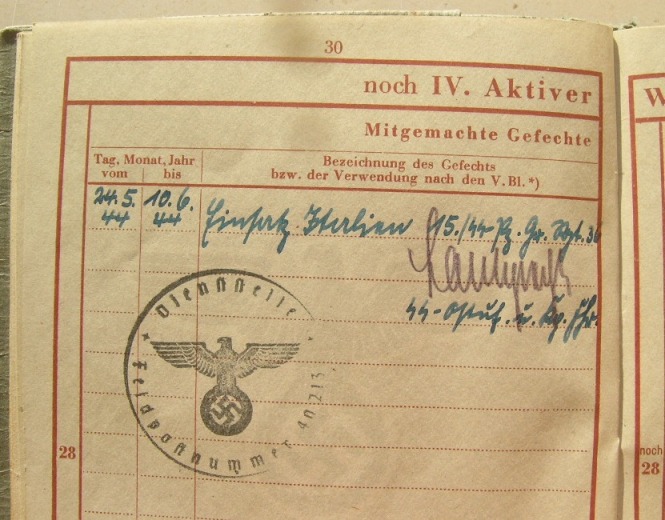 30
noch IV. Aktiver
W
Mitgemachte Gefechte
Tag, Monat, Jahr
vom bis
Bezeichnung des Gefechts
bzw. der Verwendung nach den V. Bl. *)
24.5. 10.6. Einsatz Italien 15./44 Pz. Gr. Rgt. 36
44 44
44-Ostuf. u. Kp. Fhr.
Dienststelle
* Feldpostnummer 40213
28
noch
28